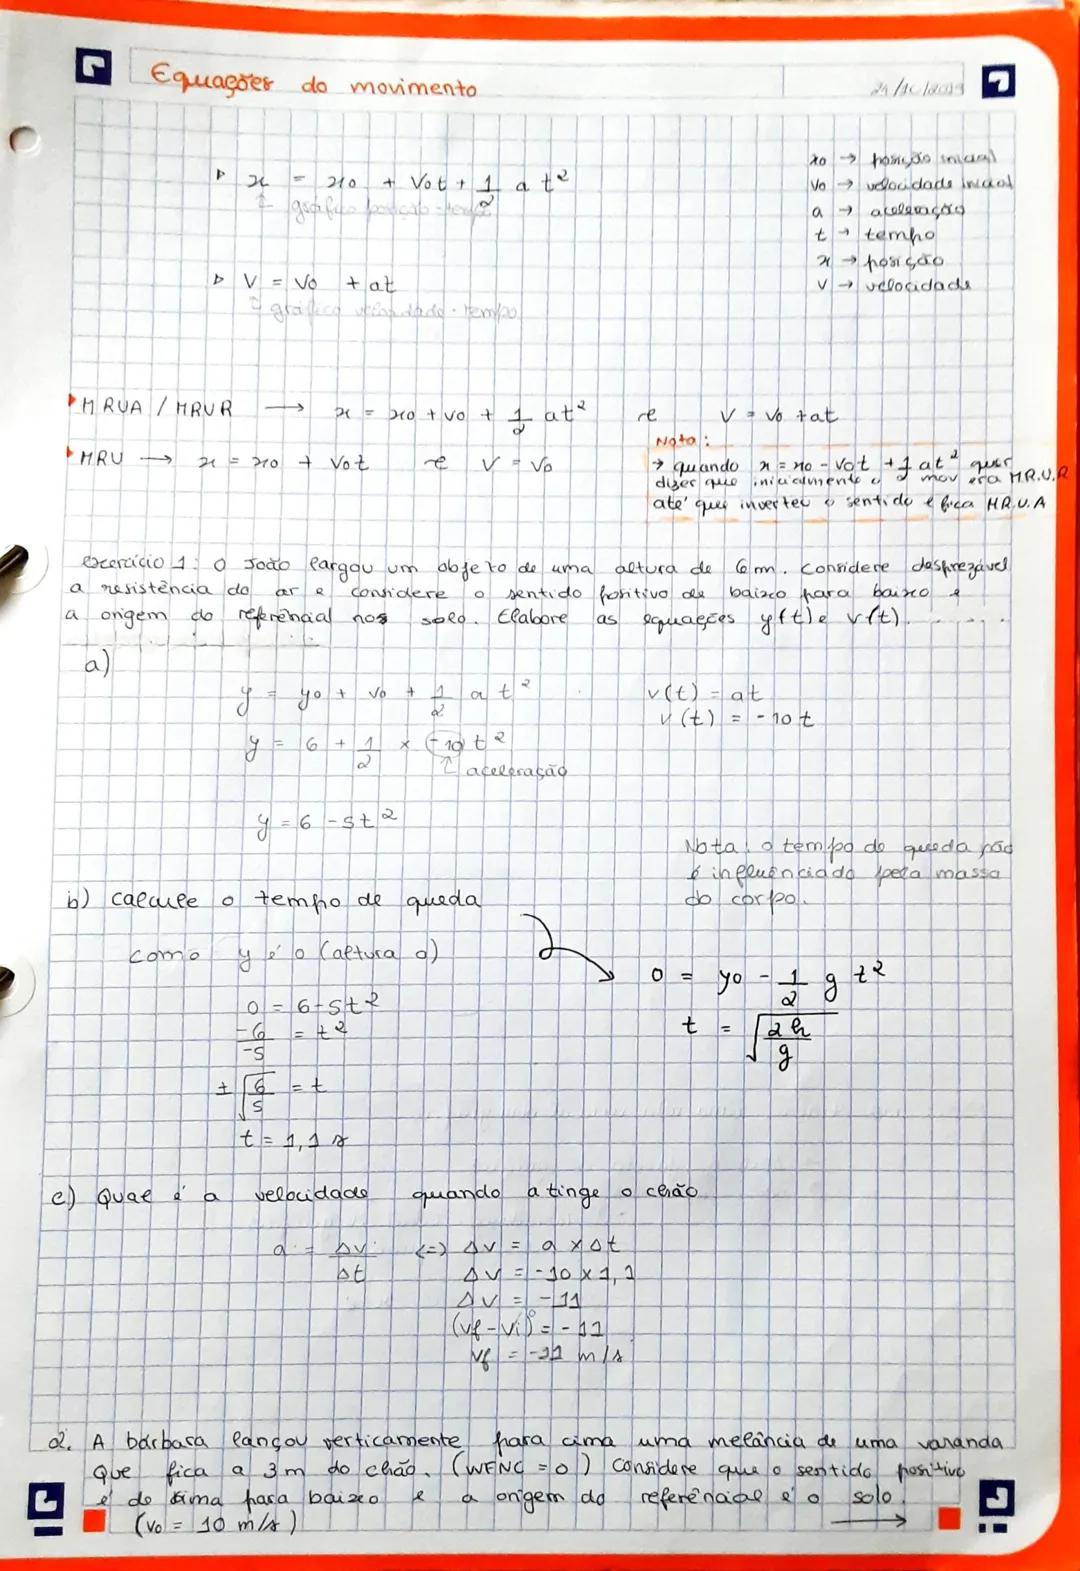 Equações do movimento
x = x0 + V0t + 1/2 a t²
gráfico posição-tempo
V = V0 + at
gráfico velocidade-tempo
x0 → posição inicial
V0 → velocidade inicial
a → aceleração
t → tempo
x → posição
V → velocidade
MRUA / MRUR → x = x0 + v0 + 1/2 at² e V = V0 + at
MRU → x = x0 + V0t e V = V0
Nota:
→ quando x = x0 - V0t + 1/2 at² quer
dizer que inicialmente o mov era M.R.U.R
até que inverteu o sentido e fica M.R.U.A
exercício 1: O João largou um objeto de uma altura de 6m. Considere desprezável
a resistência do ar e considere o sentido positivo de baixo para baixo e
a origem do referêncial nos solo. Elabore as equações y(t) e v(t).
a)
y = y0 + v0 + 1/2 a t²
y = 6 + 1/2 × (-10) t²
aceleração
y = 6 - 5t²
v(t) = at
v(t) = -10t
Nota: o tempo de queda não
é influênciado pela massa
do corpo.
b) calcule o tempo de queda
como y é 0 (altura 0)
0 = 6-5t²
-6/-5 = t²
± √6/5 = t
t = 1,1 s
0 = y0 - 1/2 g t²
t = √2h/g
c) Qual é a velocidade quando atinge o chão
a = Δv/Δt (=) Δv = a × Δt
Δv = -10 × 1,1
Δv = -11
(vf - vi)⁰ = -11
vf = -11 m/s
2. A bárbara lançou verticamente para cima uma melância de uma varanda
Que fica a 3m do chão. (WFNC = 0) Considere que o sentido positivo
é de cima para baixo e a origem do referêncial é o solo.
(v0 = 10 m/s)